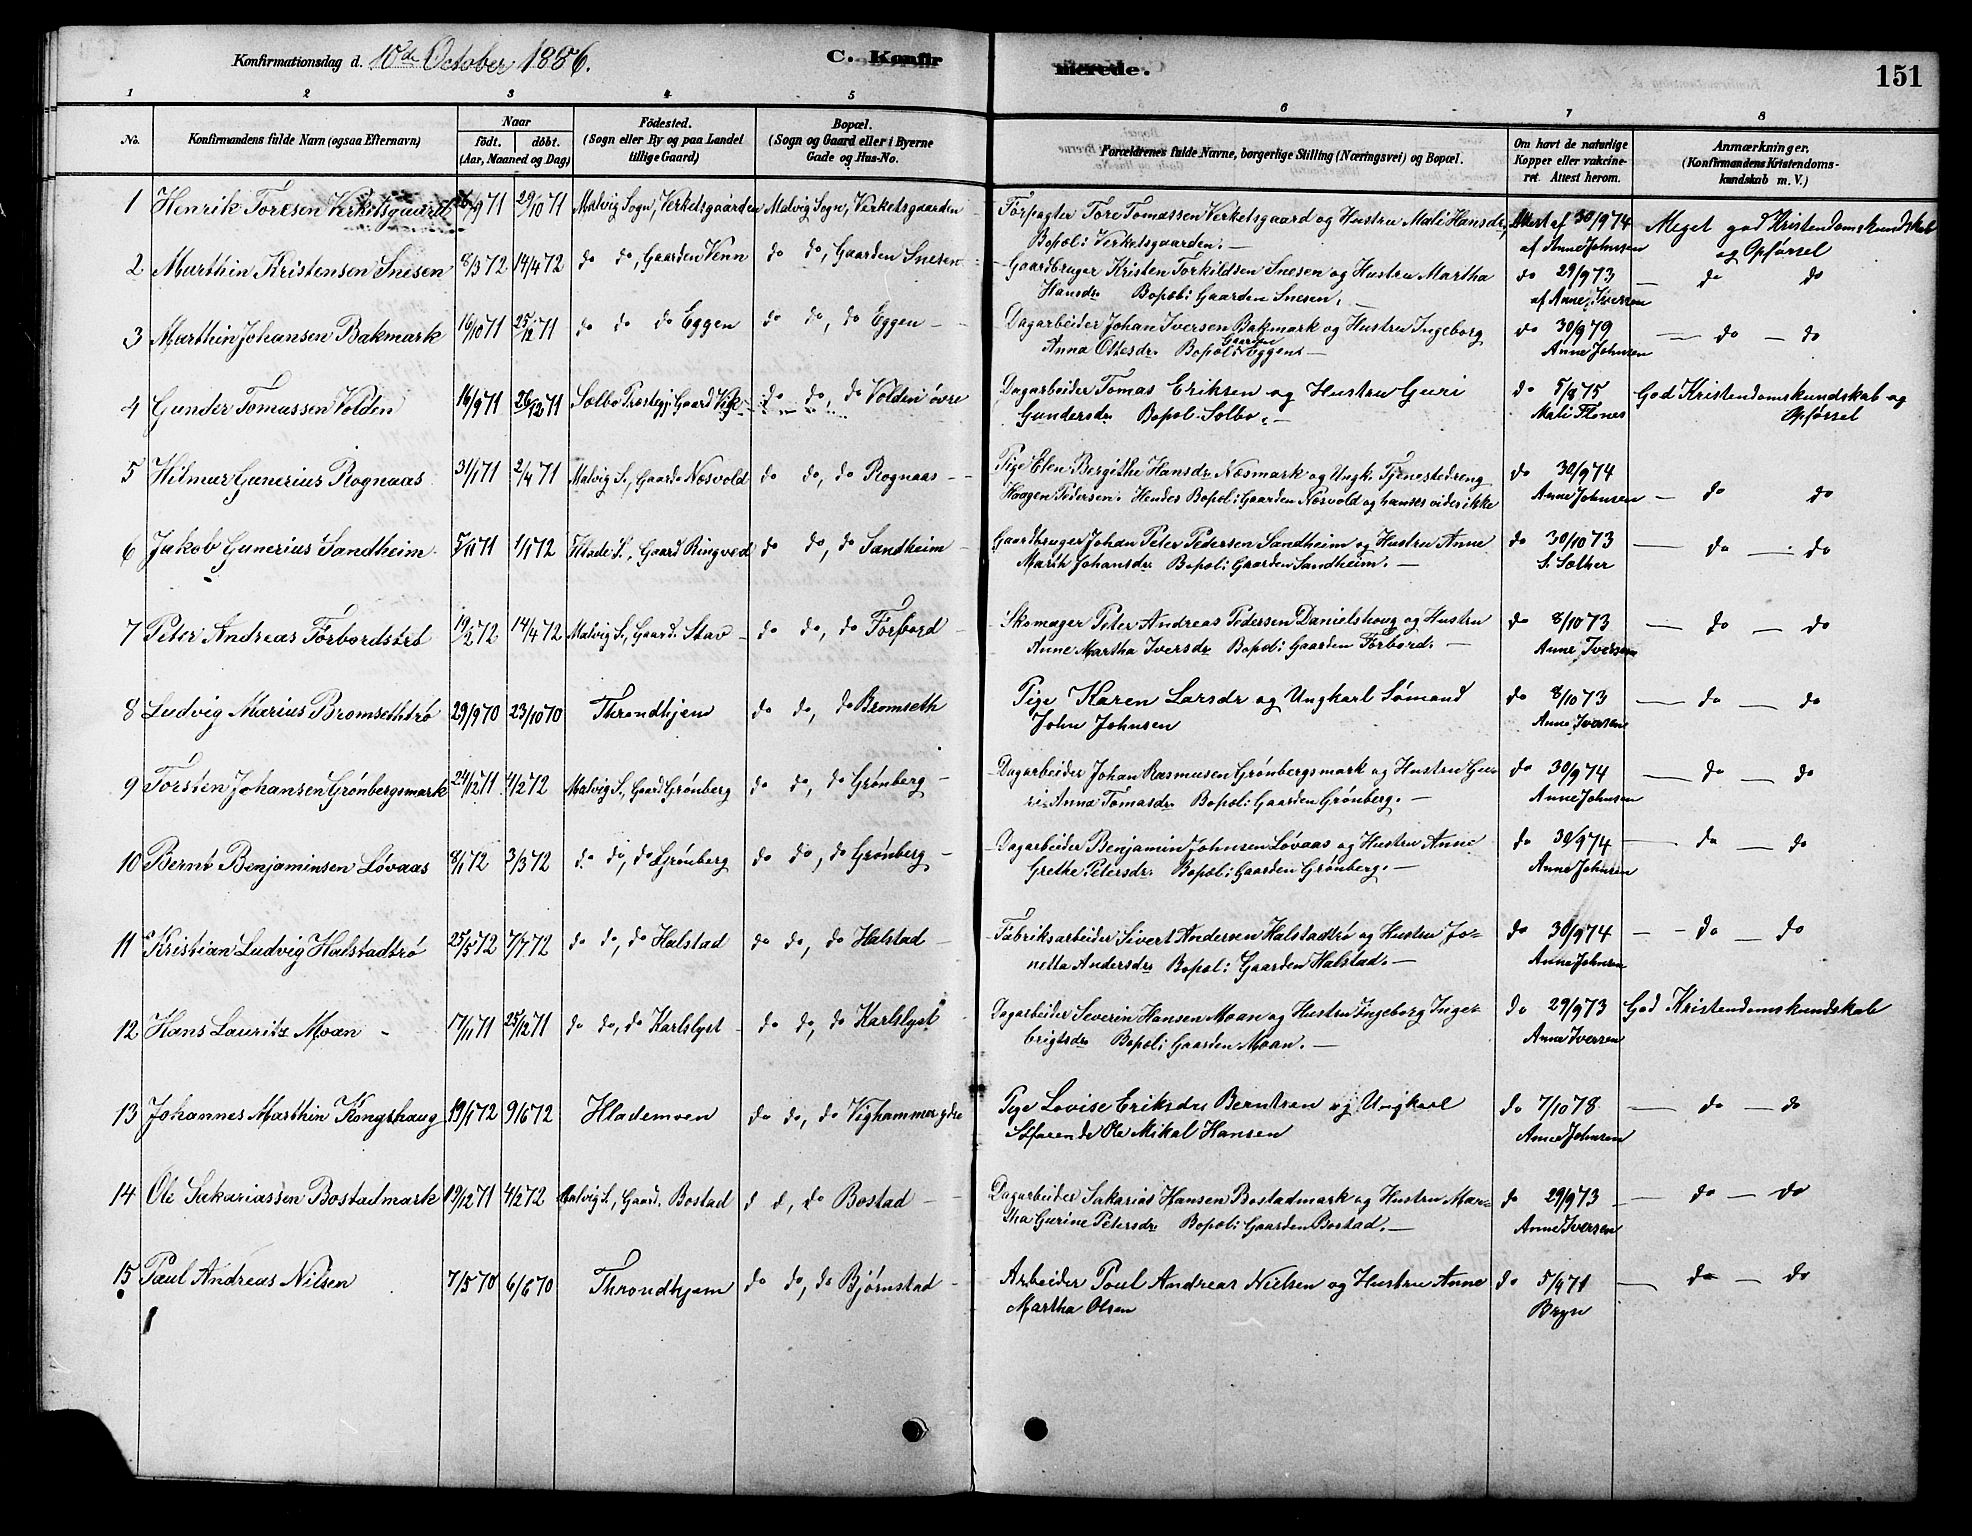 Konfirmationsdag d. 10de October 1886.
C. Konfirmerede.
151
1 2 3 4 5 6 7 8
No.
Konfirmandens fulde Navn (ogsaa Efternavn)
Naar
födt. döbt.
(Aar, Maaned og Dag)
Födested.
(Sogn eller By og paa Landet
tillige Gaard)
Bopæl.
(Sogn og Gaard eller i Byerne
Gade og Hus-No.
Forældrenes fulde Navne, borgerlige Stilling (Næringsvei) og Bopæl.
Om havt de naturlige
Kopper eller vakcineret.
Attest herom.
Anmærkninger.
(Konfirmandens Kristendomskundskab
m. V.)
1 Henrik Toresen Verketsgaard 29/10 71 Malvig Sogn, Verketsgaarden Malvig Sogn, Verketsgaarden
Forpagter Tore Tomassen Verketsgaard og Hustru Mali Hansdr, Attest af 30/9 74 Meget god Kristendomskundskab
Bopæl: Verketsgaarden. — af Anne Johnsen og Opførsel
2 Marthin Kristensen Snesen 8/3 72 14/4 72 do do, Gaarden Venn do do, Gaarden Snesen
Gaardbruger Kristen Torkildsen Snesen og Hustru Martha do 29/9 73 — do do
Hansdr. Bopæl: Gaarden Snesen. — af Anne Iversen
3 Marthin Johansen Bakmark 16/10 71 25/12 71 do do do Eggen do do, do Eggen
Dagarbeider Johan Iversen Bakmark og Hustru Ingeborg do 30/9 79 — do — do
Anna Ottesdr. Bopæl: Gaarden Eggen. — Anne Johnsen
4 Gunder Tomassen Volden 16/9 71 26/12 71 Selbo Prestegj. Gaard Vik do do, do Volden øvre
Dagarbeider Tomas Eriksen og Hustru Guri do 5/8 75 God Kristendomskundskab og
Gundersdr Bopæl: Selbo. — Mali Flones Opførsel
5 Hilmar Gunerius Rognaas 31/1 71 2/4 71 Malvig S., Gaard. Næsvold do do, do Rognaas
Pige Elen Bergithe Hansdr. Næsmark og Ungk. Tjenestedreng do 30/9 74
Haagen Pedersen. Hendes Bopæl: Gaarden Næsvold og hanses vides ikke Anne Johnsen — do do
6 Jakob Gunerius Sandheim 5/11 71 1/1 72 Hlade S., Gaard Ringved do do, do Sandheim
Gaardbruger Johan Peter Pedersen Sandheim og Hustru Anne do 30/10 73 — do — do
Marth Johansdr. Bopæl: Gaarden Sandheim. — S. Sæther
7 Peter Andreas Forbordstrø 19/2 72 14/4 72 Malvig S., Gaard. Stav do do, do Forbord
Skomager Peter Andreas Pedersen Danielshoug og Hustru do 8/10 73 — do — do
Anne Martha Iversdr Bopæl: Gaarden Forbord. — Anne Iversen
8 Ludvig Marius Bromsethtrø 29/9 70 23/10 70 Throndhjem do do, do Bromseth
Pige Karen Larsdr og Ungkarl Sømand do 8/10 73 — do — do
John Johnsen Anne Iversen
9 Torsten Johansen Grønbergsmark 24/12 71 4/2 72 Malvig S., Gaard Grønberg do do, do Grønberg
Dagarbeider Johan Rasmusen Grønbergsmark og Hustru Gu- do 30/9 74 — do — do
ri Anna Tomasdr. Bopæl: Gaarden Grønberg. — Anne Johnsen
10 Bernt Benjaminsen Løvaas 8/1 72 3/3 72 do do, do Grønberg do do, do Grønberg
Dagarbeider Benjamin Johnsen Løvaas og Hustru Anne do 30/9 74 — do — do
Grethe Petersdr. Bopæl: Gaarden Grønberg. — Anne Johnsen
11 Kristian Ludvig Halstadtrø 25/5 72 7/7 72 do do, do Halstad do do, do Halstad
Fabriksarbeider Sivert Andersen Halstadtrø og Hustru Jo- do 30/9 74 — do — do
netta Andersdr Bopæl: Gaarden Halstad. — Anne Johnsen
12 Hans Lauritz Moan 17/11 71 25/12 71 do do, do Karlslyst do do, do Karlslyst
Dagarbeider Severin Hansen Moan og Hustru Ingeborg Inge- do 29/9 73 God Kristendomskundskab
brigtsdr Bopæl: Gaarden Moan. — Anne Iversen
13 Johannes Marthin Kongshaug 19/1 72 9/6 72 Hlademoen do do, do Vighammer ydre
Pige Lovise Eriksdr Berntsen og Ungkarl do 7/10 78 — do — do
Søfarende Ole Mikal Hansen Anne Johnsen
14 Ole Sakariassen Bostadmark 19/12 71 4/2 72 Malvig S., Gaard. Bostad d d, do Bostad
Dagarbeider Sakarias Hansen Bostadmark og Hustru Mar- do 29/9 73 — do — do
tha Gurine Petersdr. Bopæl: Gaarden Bostad. — Anne Iversen
15 Paul Andreas Nilsen 7/5 70 6/6 70 Throndhjem do do, do Bjørnstad
Arbeider Poul Andreas Nielsen og Hustru Anne do 5/9 71 — do — do
Martha Olsen Bryn